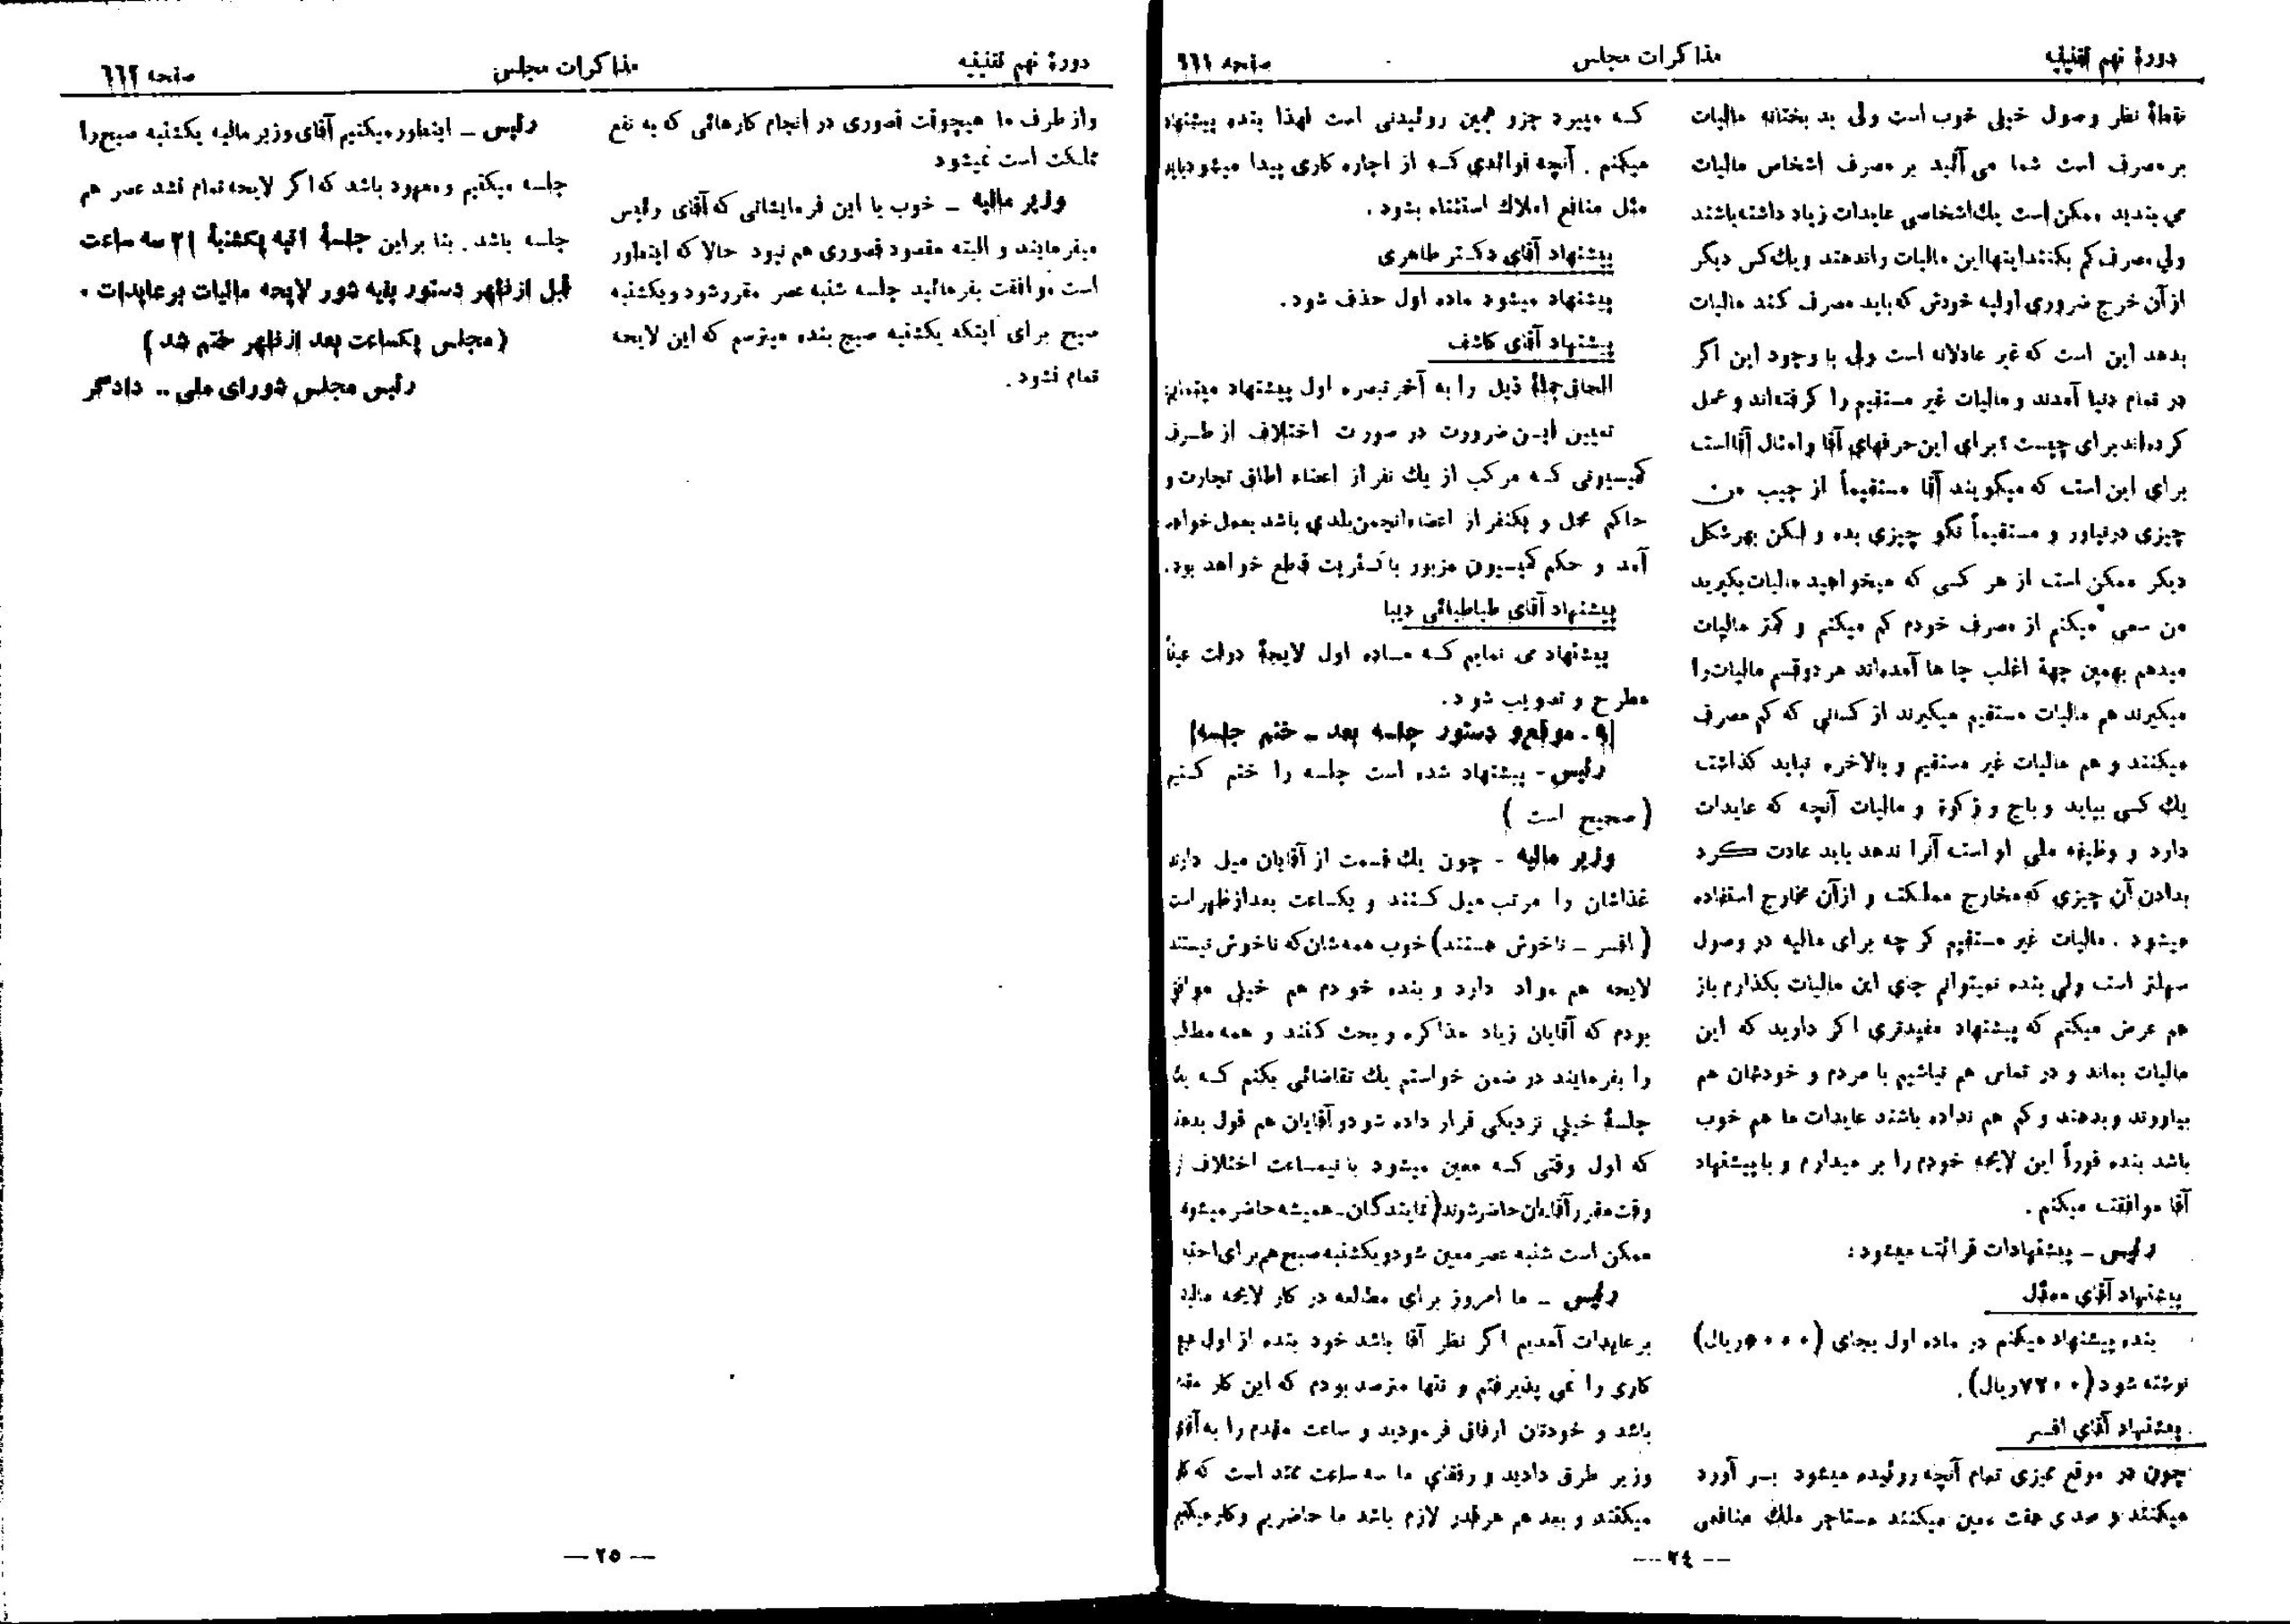 دورهٔ نهم تقنینیه
مذاکرات مجلس
صفحه ٦٦١
نقطهٔ نظر وصول خیلی خوب است ولی بد بختانه مالیات
بر مصرف است شما می آئید بر مصرف اشخاص مالیات
می بندید ممکن است یك اشخاصی عایدات زیاد داشته باشند
ولی مصرف کم بکنند اینها این مالیات را ندهند و یك کس دیگر
از آن خرج ضروری اولیه خودش که باید مصرف کند مالیات
بدهد این است که غیر عادلانه است ولی با وجود این اگر
در تمام دنیا آمدند و مالیات غیر مستقیم را گرفته‌اند و عمل
کرده‌اند برای چیست ؟ برای این حرفهای آقا و امثال آقا است
برای این است که میگویند آقا مستقیماً از جیب من
چیزی درنیاور و مستقیماً نگو چیزی بده و لیکن بهر شکل
دیگر ممکن است از هر کسی که میخواهید مالیات بگیرید
من سعی میکنم از مصرف خودم کم میکنم و کمتر مالیات
میدهم بهمین جهة اغلب جا ها آمده‌اند هر دو قسم مالیات را
میگیرند هم مالیات مستقیم میگیرند از کسانی که کم مصرف
میکنند و هم مالیات غیر مستقیم و بالاخره نباید گذاشت
یك کسی بیاید و باج و زکوة و مالیات آنچه که عایدات
دارد و وظیفه ملی او است آنرا ندهد باید عادت کرد
بدادن آن چیزی که مخارج مملکت و از آن مخارج استفاده
میشود . مالیات غیر مستقیم گر چه برای مالیه در وصول
سهلتر است ولی بنده نمیتوانم جای این مالیات بگذارم باز
هم عرض میکنم که پیشنهاد مفیدتری اگر دارید که این
مالیات بماند و در تماس هم نباشیم با مردم و خودشان هم
بیاورند و بدهند و کم هم نداده باشند عایدات ما هم خوب
باشد بنده فوراً این لایحه خودم را بر میدارم و با پیشنهاد
آقا موافقت میکنم .
رئیس ـ پیشنهادات قرائت میشود :
پیشنهاد آقای معدّل
بنده پیشنهاد میکنم در ماده اول بجای (٥٠٠٠ریال)
نوشته شود (٧٢٠٠ریال) .
پیشنهاد آقای افسر
چون در موقع ممیزی تمام آنچه روئیده میشود بر آورد
میکنند و صدی هفت معین میکنند مستاجر ملك منافعی
کـه میبرد جزو همین روئیدنی است لهذا بنده پیشنهاد
میکنم . آنچه فوائدی کـه از اجاره کاری پیدا میشود باید
مثل منافع املاك استثناء بشود .
پیشنهاد آقای دکتر طاهری
پیشنهاد میشود ماده اول حذف شود .
پیشنهاد آقای کاشف
الحاق جملهٔ ذیل را به آخر تبصره اول پیشنهاد مینمایم
تعیین ایـن ضرورت در صورت اختلاف از طـرف
کمیسیونی کـه مرکب از یك نفر از اعضاء اطاق تجارت و
حاکم محل و یکنفر از اعضاء انجمن بلدی باشد بعمل خواهد
آمد و حکم کمیسیون مزبور با کثریت قطع خواهد بود.
پیشنهاد آقای طباطبائی دیبا
پیشنهاد می نمایم کـه مـاده اول لایحهٔ دولت عیناً
مطرح و تصویب شود.
[٩ ـ موقع و دستور جلسه بعد ـ ختم جلسه]
رئیس ـ پیشنهاد شده است جلسه را ختم کـنیم
( صحیح است )
وزیر مالیه ـ چون یك قسمت از آقایان میل دارند
غذاشان را مرتب میل کـنند و یکساعت بعد از ظهر است
( افسر ـ ناخوش هستند) خوب همه‌شان که ناخوش نیستند
لایحه هم مواد دارد و بنده خودم هم خیلی موافق
بودم که آقایان زیاد مذاکره و بحث کنند و همه مطالب
را بفرمایند در ضمن خواستم یك تقاضائی بکنم کـه یك
جلسهٔ خیلی نزدیکی قرار داده شود و آقایان هم قول بدهند
که اول وقتی کـه معین میشود با نیمساعت اختلاف از
وقت مقرر آقایان حاضر شوند (نمایندگان ـ همیشه حاضر میشوند
ممکن است شنبه عصر معین شود و یکشنبه صبح هم برای
رئیس ـ ما امروز برای مطالعه در کار لایحه مالیات
بر عایدات آمدیم اگر نظر آقا باشد خود بنده از اول هیچ
کاری را نمی پذیرفتم و تنها مترصد بودم که این کار مقدم
باشد و خودتان ارفاق فرمودید و ساعت مقدم را به آقای
وزیر طرق دادید و رفقای ما سه ساعت تمتد است که کار
میکنند و بعد هم هر قدر لازم باشد ما حاضریم و کار میکنیم
— ٢٤ —
دورهٔ نهم تقنینیه
مذاکرات مجلس
صفحه ٦٦٢
و از طرف ما هیچوقت قصوری در انجام کارهائی که به نفع
مملکت است نمیشود
وزیر مالیه ـ خوب با این فرمایشاتی که آقای رئیس
میفرمایند و البته مقصود قصوری هم نبود حالا که اینطور
است موافقت بفرمائید جلسه شنبه عصر مقرر شود و یکشنبه
صبح برای اینکه یکشنبه صبح بنده میترسم که این لایحه
تمام نشود .
رئیس ـ اینطور میکنیم آقای وزیر مالیه یکشنبه صبح را
جلسه میکنیم و معهود باشد که اگر لایحه تمام نشد عصر هم
جلسه باشد . بنا براین جلسهٔ آتیه یکشنبهٔ ٢١ سه ساعت
قبل از ظهر دستور بقیه شور لایحه مالیات بر عایدات .
(مجلس یکساعت بعد از ظهر ختم شد)
رئیس مجلس شورای ملی .. دادگر
— ٢٥ —